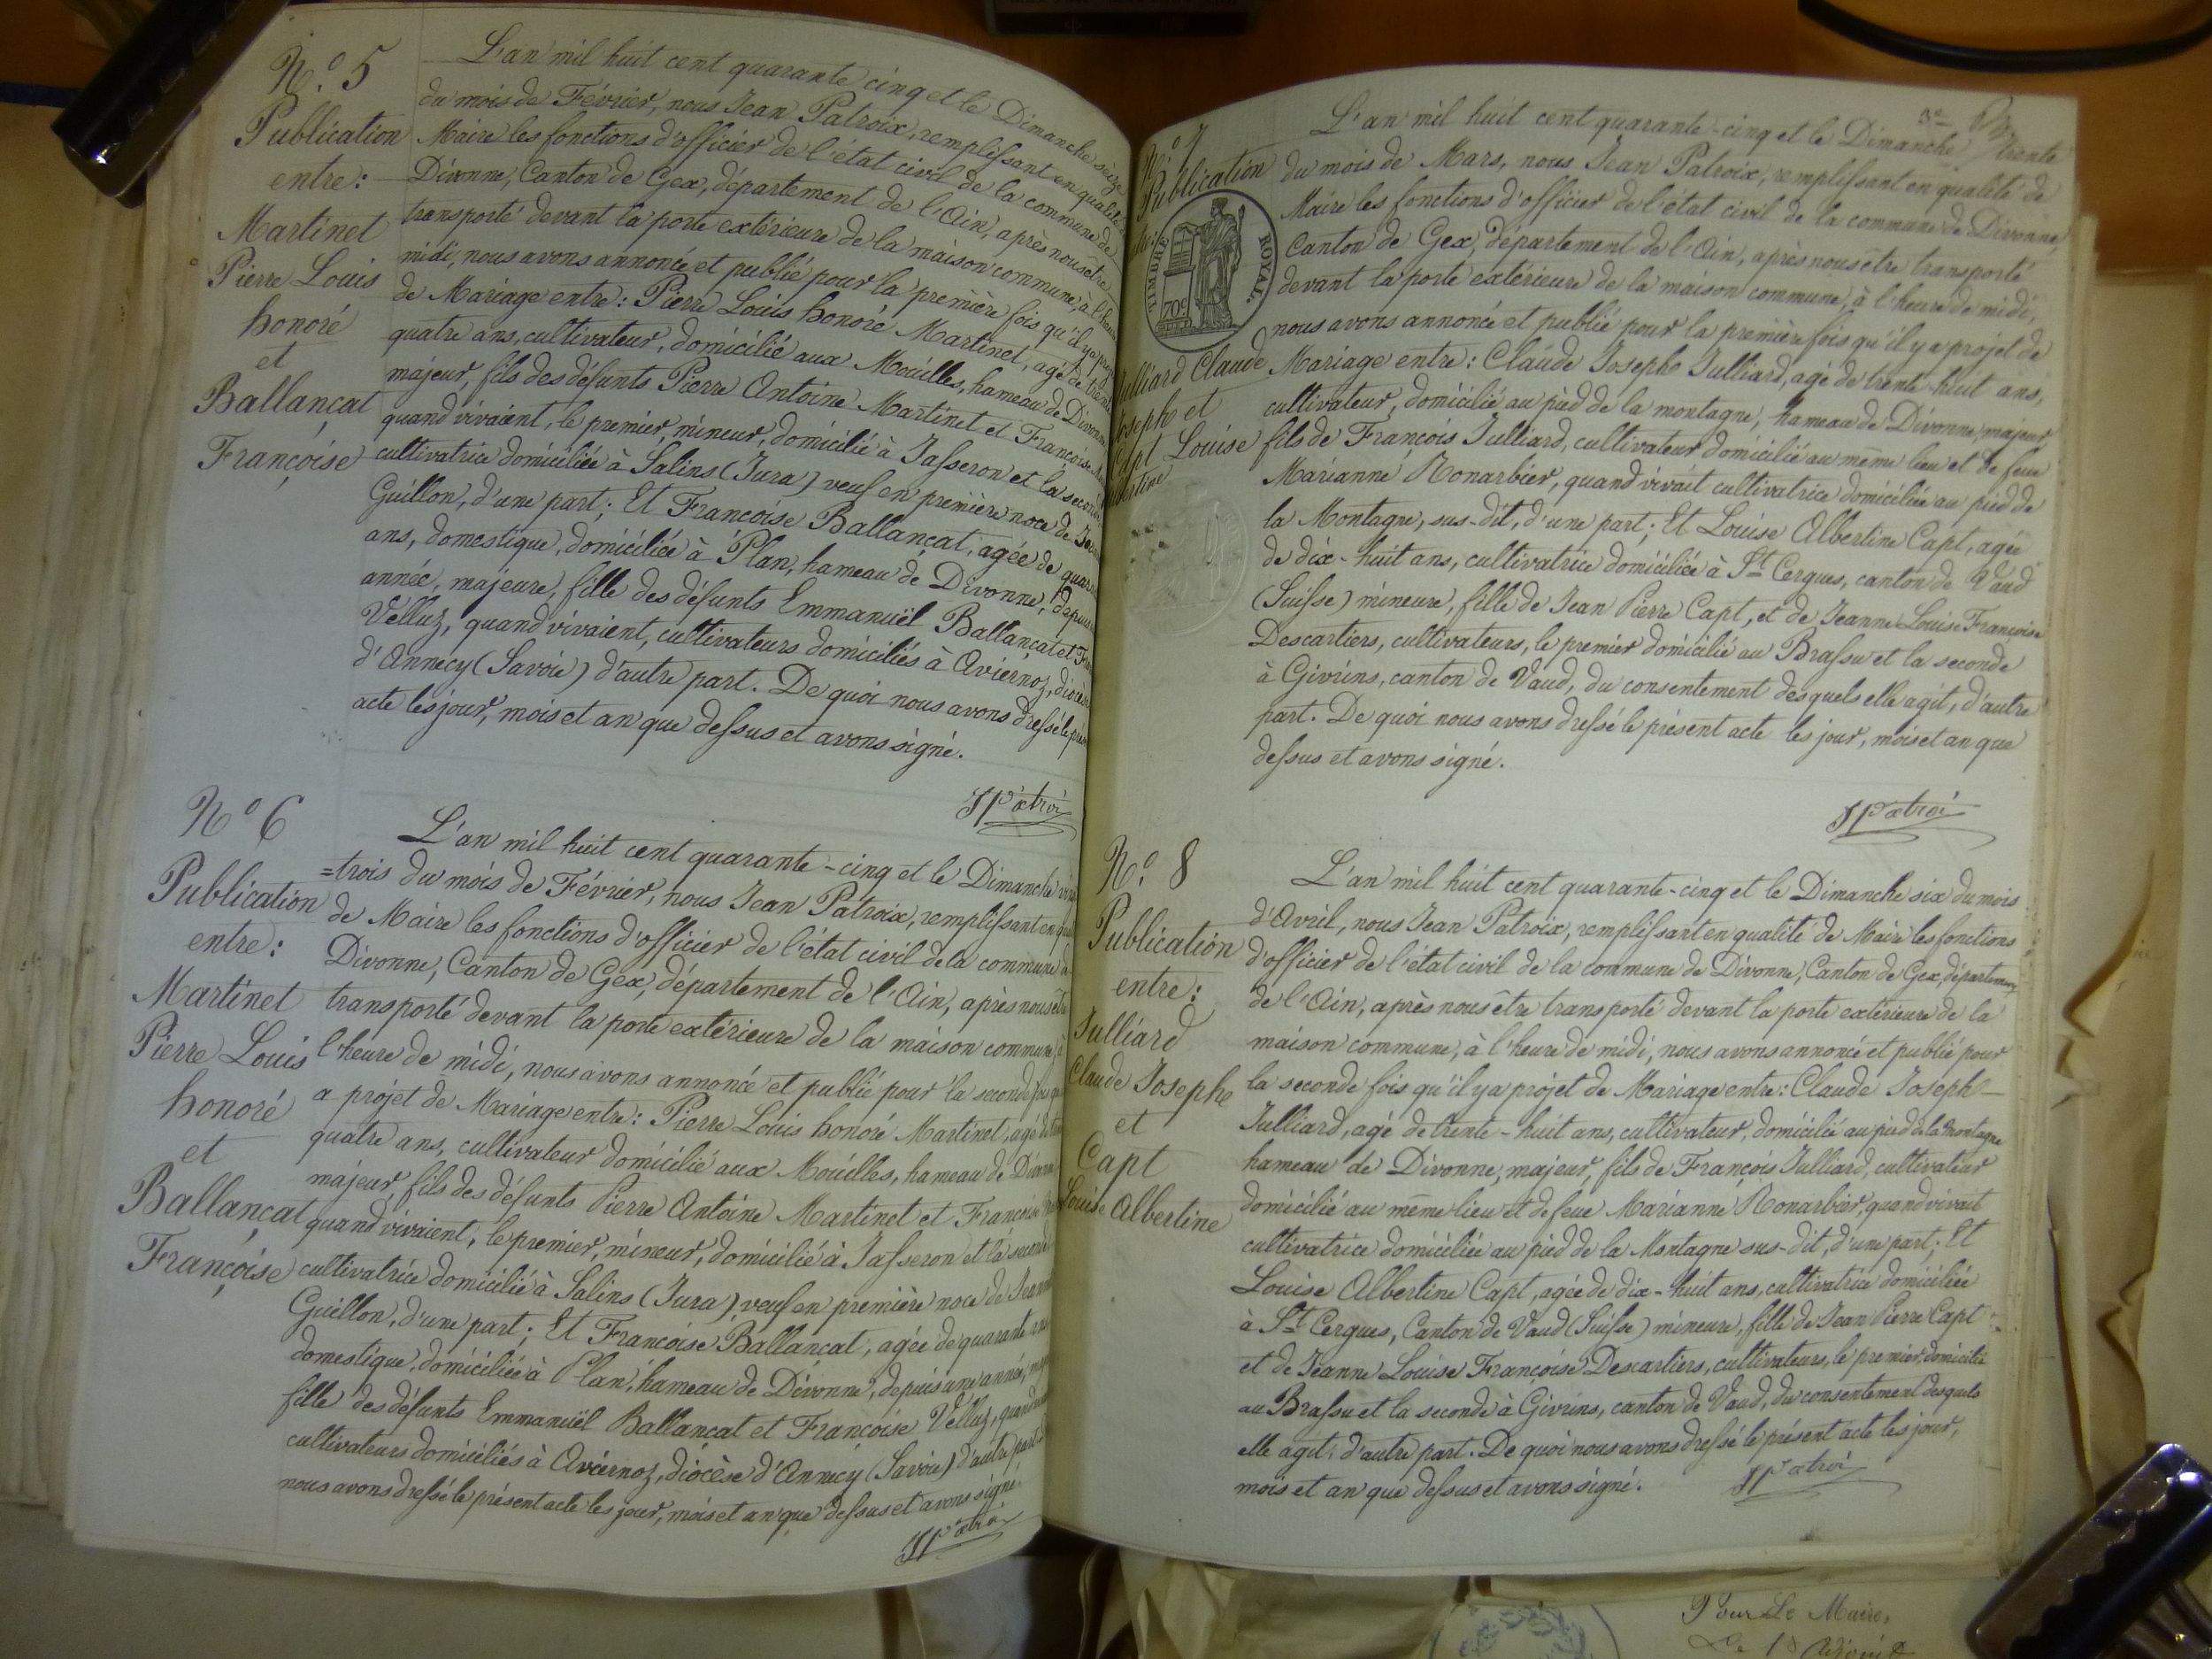 N.o 5
Publication
entre:
Martinet
Pierre Louis
honoré
et
Ballançat
Françoise
L'an mil huit cent quarante cinq et le Dimanche seize
du mois de Février, nous Jean Patroix, remplissant en qualité
Maire les fonctions d'officier de l'état civil de la commune de
Divonne, Canton de Gex, département de l'Ain, après nous être
transporté devant la porte extérieure de la maison commune, à l'heure
midi, nous avons annoncé et publié pour la première fois qu'il y a
de Mariage entre: Pierre Louis honoré Martinet, agé de trente
quatre ans, cultivateur, domicilié aux Mouilles, hameau de Divonne
majeur, fils des défunts Pierre Antoine Martinet et Françoise
quand vivaient, le premier, mineur, domicilié à Jasseron et la seconde
cultivatrice domiciliée à Salins (Jura) veuf en première noce de
Guillon, d'une part; Et Françoise Ballançat, agée de
ans, domestique, domiciliée à Plan, hameau de Divonne, depuis
année, majeure, fille des défunts Emmanuël Ballançat et
Velluz, quand vivaient, cultivateurs domiciliés à Aviernoz, diocèse
d'Annecy (Savoie) d'autre part. De quoi nous avons dressé le
acte les jour, mois et an que dessus et avons signé.
JPatroi
N.o 6
Publication
entre:
Martinet
Pierre Louis
honoré
et
Ballançat
Françoise
L'an mil huit cent quarante-cinq et le Dimanche
=trois du mois de Février, nous Jean Patroix, remplissant en
de Maire les fonctions d'officier de l'état civil de la commune
Divonne, Canton de Gex, département de l'Ain, après nous être
transporté devant la porte extérieure de la maison commune à
l'heure de midi, nous avons annoncé et publié pour la seconde fois
a projet de Mariage entre: Pierre Louis honoré Martinet, agé de
quatre ans, cultivateur domicilié aux Mouilles, hameau de Divonne
majeur, fils des défunts Pierre Antoine Martinet et Françoise
quand vivaient, le premier, mineur, domicilié à Jasseron et la seconde
cultivatrice domicilié à Salins (Jura), veuf en première noce de
Guillon, d'une part; Et Françoise Ballançat, agée de quarante
domestique, domiciliée à Plan, hameau de Divonne, depuis une année,
fille des défunts Emmanuël Ballançat et Françoise Velluz, quand
cultivateurs domiciliés à Aviernoz, diocèse d'Annecy (Savoie) d'autre part
nous avons dressé le présent acte les jour, mois et an que dessus et avons signé.
JPatroi
3e
N.o 7
Publication
TIMBRE ROYAL
70c
Julliard Claude
Joseph et
Capt Louise
L'an mil huit cent quarante-cinq et le Dimanche trente
du mois de Mars, nous Jean Patroix, remplissant en qualité de
Maire les fonctions d'officier de l'état civil de la commune de Divonne,
Canton de Gex, département de l'Ain, après nous être transporté
devant la porte extérieure de la maison commune, à l'heure de midi,
nous avons annoncé et publié pour la première fois qu'il y a projet de
Mariage entre: Claude Joseph Julliard, agé de trente-huit ans,
cultivateur, domicilié au pied de la montagne, hameau de Divonne, majeur,
fils de François Julliard, cultivateur domicilié au même lieu et de feue
Marianne Monarbier, quand vivait cultivatrice domiciliée au pied de
la Montagne, sus-dit, d'une part; Et Louise Albertine Capt, agée
de dix-huit ans, cultivatrice domiciliée à St Cergues, canton de Vaud
(Suisse) mineure, fille de Jean Pierre Capt, et de Jeanne Louise Françoise
Descartiers, cultivateurs, le premier domicilié au Brassu et la seconde
à Givrins, canton de Vaud, du consentement desquels elle agit, d'autre
part. De quoi nous avons dressé le présent acte les jour, mois et an que
dessus et avons signé.
JPatroi
N.o 8
Publication
entre:
Julliard
Claude Joseph
et
Capt
Louise Albertine
L'an mil huit cent quarante-cinq et le Dimanche six du mois
d'Avril, nous Jean Patroix, remplissant en qualité de Maire les fonctions
d'officier de l'état civil de la commune de Divonne, Canton de Gex, département
de l'Ain, après nous être transporté devant la porte extérieure de la
maison commune, à l'heure de midi, nous avons annoncé et publié pour
la seconde fois qu'il y a projet de Mariage entre: Claude Joseph
Julliard, agé de trente-huit ans, cultivateur, domicilié au pied de la Montagne
hameau de Divonne, majeur, fils de François Julliard, cultivateur
domicilié au même lieu et de feue Marianne Monarbier, quand vivait
cultivatrice domiciliée au pied de la Montagne sus-dit, d'une part; Et
Louise Albertine Capt, agée de dix-huit ans, cultivatrice domiciliée
à St Cergues, Canton de Vaud (Suisse) mineure, fille de Jean Pierre Capt
et de Jeanne Louise Françoise Descartiers, cultivateurs, le premier domicilié
au Brassu et la seconde à Givrins, canton de Vaud, du consentement desquels
elle agit, d'autre part. De quoi nous avons dressé le présent acte les jour,
mois et an que dessus et avons signé.
JPatroi
Pour Le Maire,